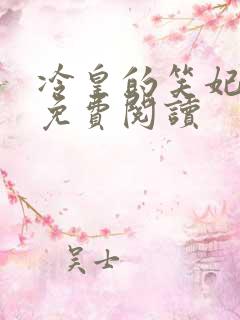 冷皇的笑妃
免費閱讀
吴士